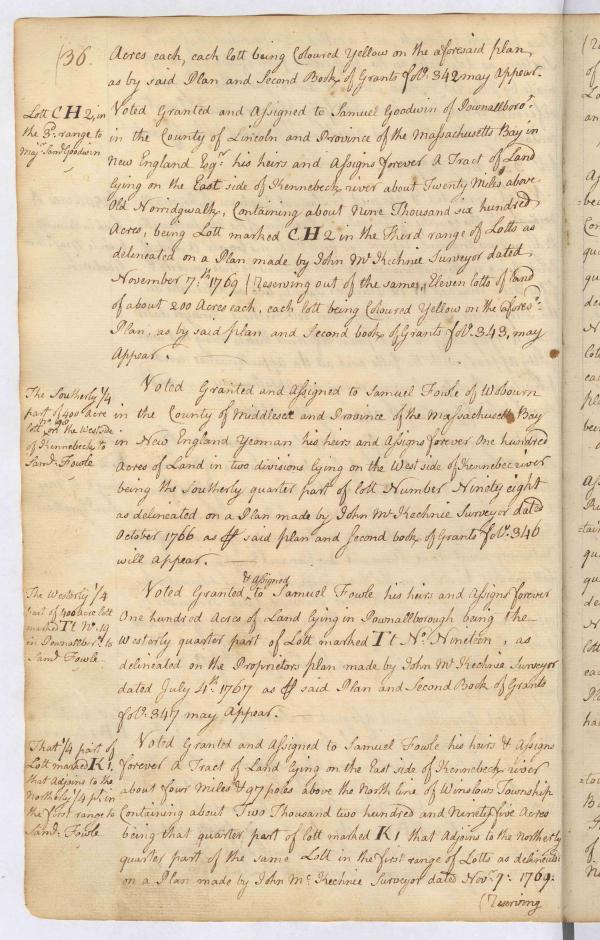 (36.
Acres each, each lott being Coloured Yellow on the aforesaid plan,
as by said Plan and Second Book of Grants fol°. 342 may Appear.
Lott CH 2, in
the 3d. range to
Majr. Saml. Goodwin
Voted Granted and Assigned to Samuel Goodwin of Pownallboro'.
in the County of Lincoln and Province of the Massachusetts Bay in
New England Esqr. his heirs and Assigns forever A Tract of Land
lying on the East side of Kennebeck river about Twenty Miles above
Old Norridgwalk, Containing about Nine Thousand six hundred
Acres, being Lott marked CH 2 in the Third range of Lotts as
delineated on a Plan made by John McKechnie Surveyor dated
November 7.th 1769 (Reserving out of the same, Eleven lotts of land
of about 200 Acres each, each lott being Coloured Yellow on the afores.d
Plan, as by said plan and Second book of Grants fol°. 343, may
Appear.
The Southerly 1/4
part of 400 acre
lott No. 98 on the West side
of Kennebeck to
Saml. Fowle
Voted Granted and Assigned to Samuel Fowle of Wobourn
in the County of Middlesex and Province of the Massachusetts Bay
in New England Yeoman his heirs and Assigns forever One hundred
Acres of Land in two divisions lying on the West side of Kennebec river
being the Southerly quarter part of lott Number Ninety eight
as delineated on a Plan made by John McKechnie Surveyor dated
October 1766 as P said plan and Second book of Grants fol°. 346
will Appear.
The Westerly 1/4
part of 400 acre lott
marked Tt No. 19
in Pownallboro. to
Saml. Fowle.
Voted Granted & Assigned to Samuel Fowle his heirs and Assigns forever
One hundred Acres of Land lying in Pownallborough being the
Westerly quarter part of Lott marked Tt No. Nineteen, as
delineated on the Proprietors plan made by John McKechnie Surveyor
dated July 4th. 1767 as P said Plan and Second Book of Grants
fol°. 347 may Appear.
That 1/4 part of
Lott marked K 1,
that adjoins to the
Northerly 1/4 pt. in
the first range to
Saml. Fowle
Voted Granted and Assigned to Samuel Fowle his heirs & Assigns
forever a Tract of Land lying on the East side of Kennebeck river
about four Miles & 97 poles above the North line of Winslow Township
Containing about Two Thousand two hundred and Ninety five Acres
being that quarter part of lott marked K 1 that Adjoins to the Northerly
quarter part of the same Lott in the first range of Lotts as delineated
on a Plan made by John McKechnie Surveyor dated Novr. 9: 1769:
(Reserving